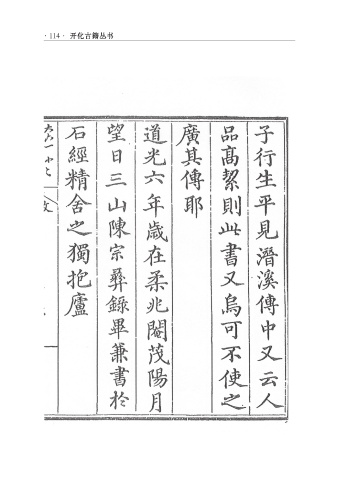 ·114· 开化古籍丛书
子行生平見潛溪傳中又云人
品高絜則此書又烏可不使之
廣其傳耶
道光六年歲在柔兆閹茂陽月
望日三山陳宗彝錄畢兼書於
石經精舍之獨抱廬